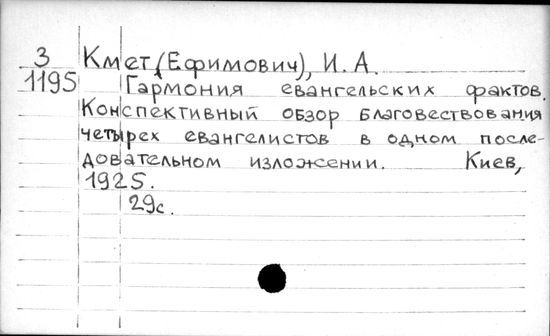 З Кмет (Ефимович), И. А.
1195 Гармония евангельских фактов.
Конспективный обзор благовествования
четырех евангелистов в одном после-
довательном изложении. Киев,
1925.
29с.